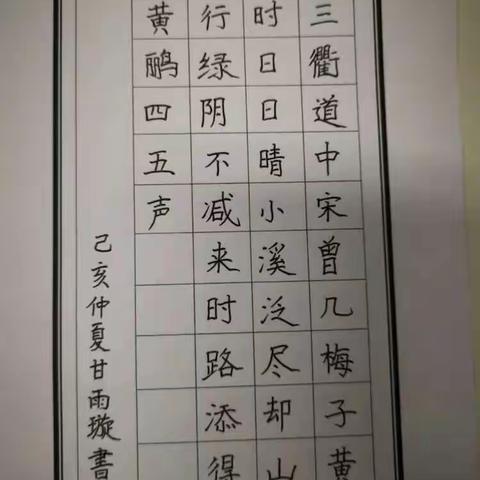 三衢道中宋曾几梅子黄
时日日晴小溪泛尽却山
行绿阴不减来时路添得
黄鹂四五声
己亥仲夏甘雨璇書